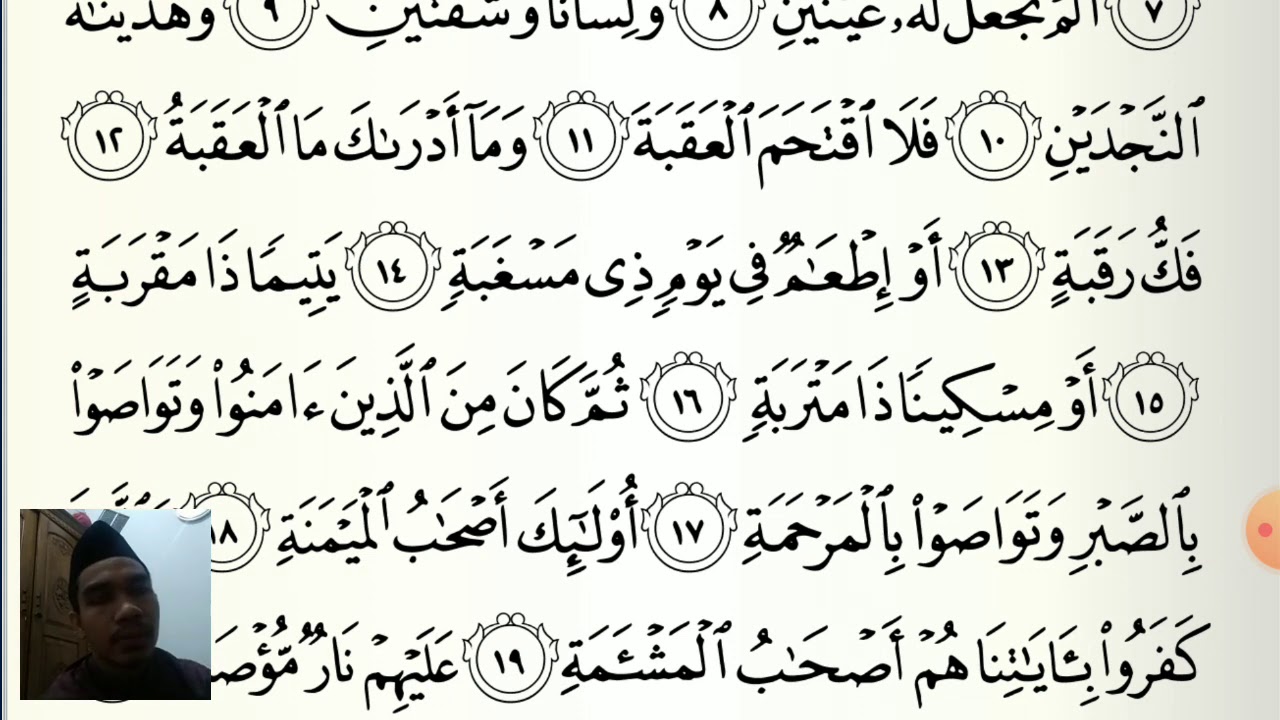 ٧ أَلَمْ نَجْعَل لَّهُۥ عَيْنَيْنِ ٨ وَلِسَانًا وَشَفَتَيْنِ ٩ وَهَدَيْنَٰهُ
ٱلنَّجْدَيْنِ ١٠ فَلَا ٱقْتَحَمَ ٱلْعَقَبَةَ ١١ وَمَآ أَدْرَىٰكَ مَا ٱلْعَقَبَةُ ١٢
فَكُّ رَقَبَةٍ ١٣ أَوْ إِطْعَٰمٌ فِى يَوْمٍ ذِى مَسْغَبَةٍ ١٤ يَتِيمًا ذَا مَقْرَبَةٍ
١٥ أَوْ مِسْكِينًا ذَا مَتْرَبَةٍ ١٦ ثُمَّ كَانَ مِنَ ٱلَّذِينَ ءَامَنُوا۟ وَتَوَاصَوْا۟
بِٱلصَّبْرِ وَتَوَاصَوْا۟ بِٱلْمَرْحَمَةِ ١٧ أُو۟لَٰٓئِكَ أَصْحَٰبُ ٱلْمَيْمَنَةِ ١٨
كَفَرُوا۟ بِـَٔايَٰتِنَا هُمْ أَصْحَٰبُ ٱلْمَشْـَٔمَةِ ١٩ عَلَيْهِمْ نَارٌ